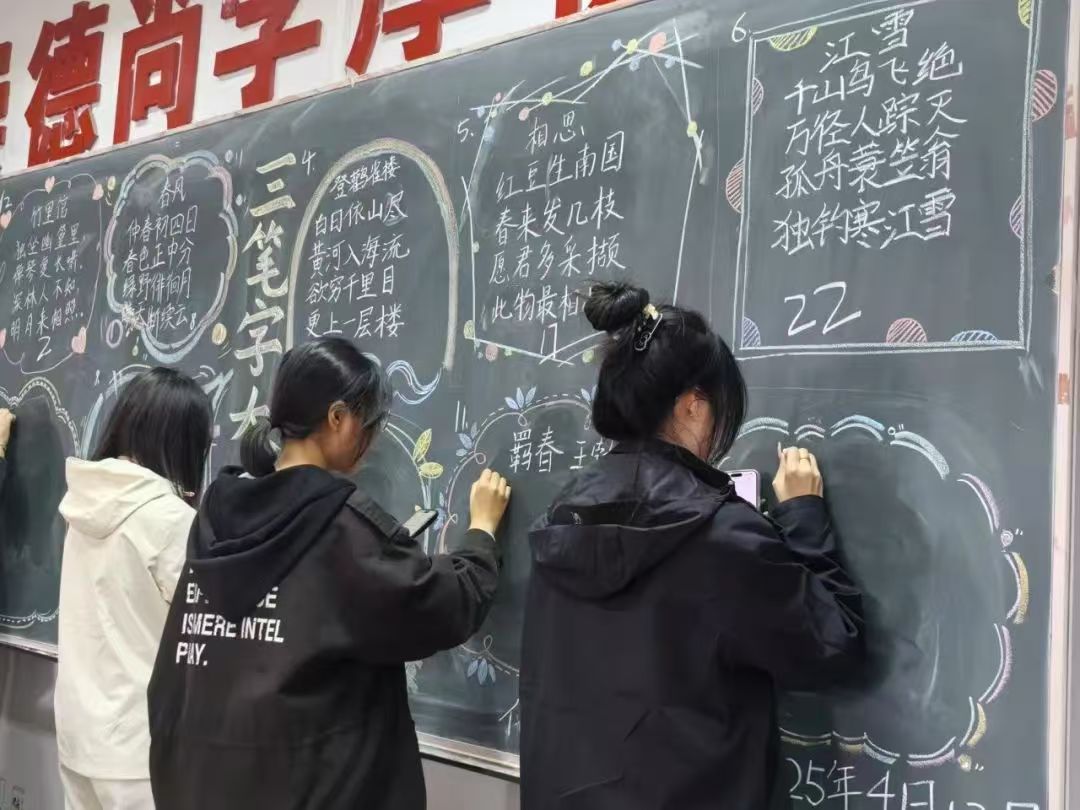 德尚学厚
三笔字大
2
竹里馆
独坐幽篁里,
弹琴复长啸.
深林人不知
明月来相照.
2
春风
仲春初四日
春色正中分
绿野徘徊月
断续云
8
4.
登鹳雀楼
白日依山尽
黄河入海流
欲穷千里目
更上一层楼
5.
相思
红豆生南国
春来发几枝
愿君多采撷
此物最相
6.
江雪
千山鸟飞绝
万径人踪灭
孤舟蓑笠翁
独钓寒江雪
22
8
11.
羁春 王
ISMERE INTEL
25年4